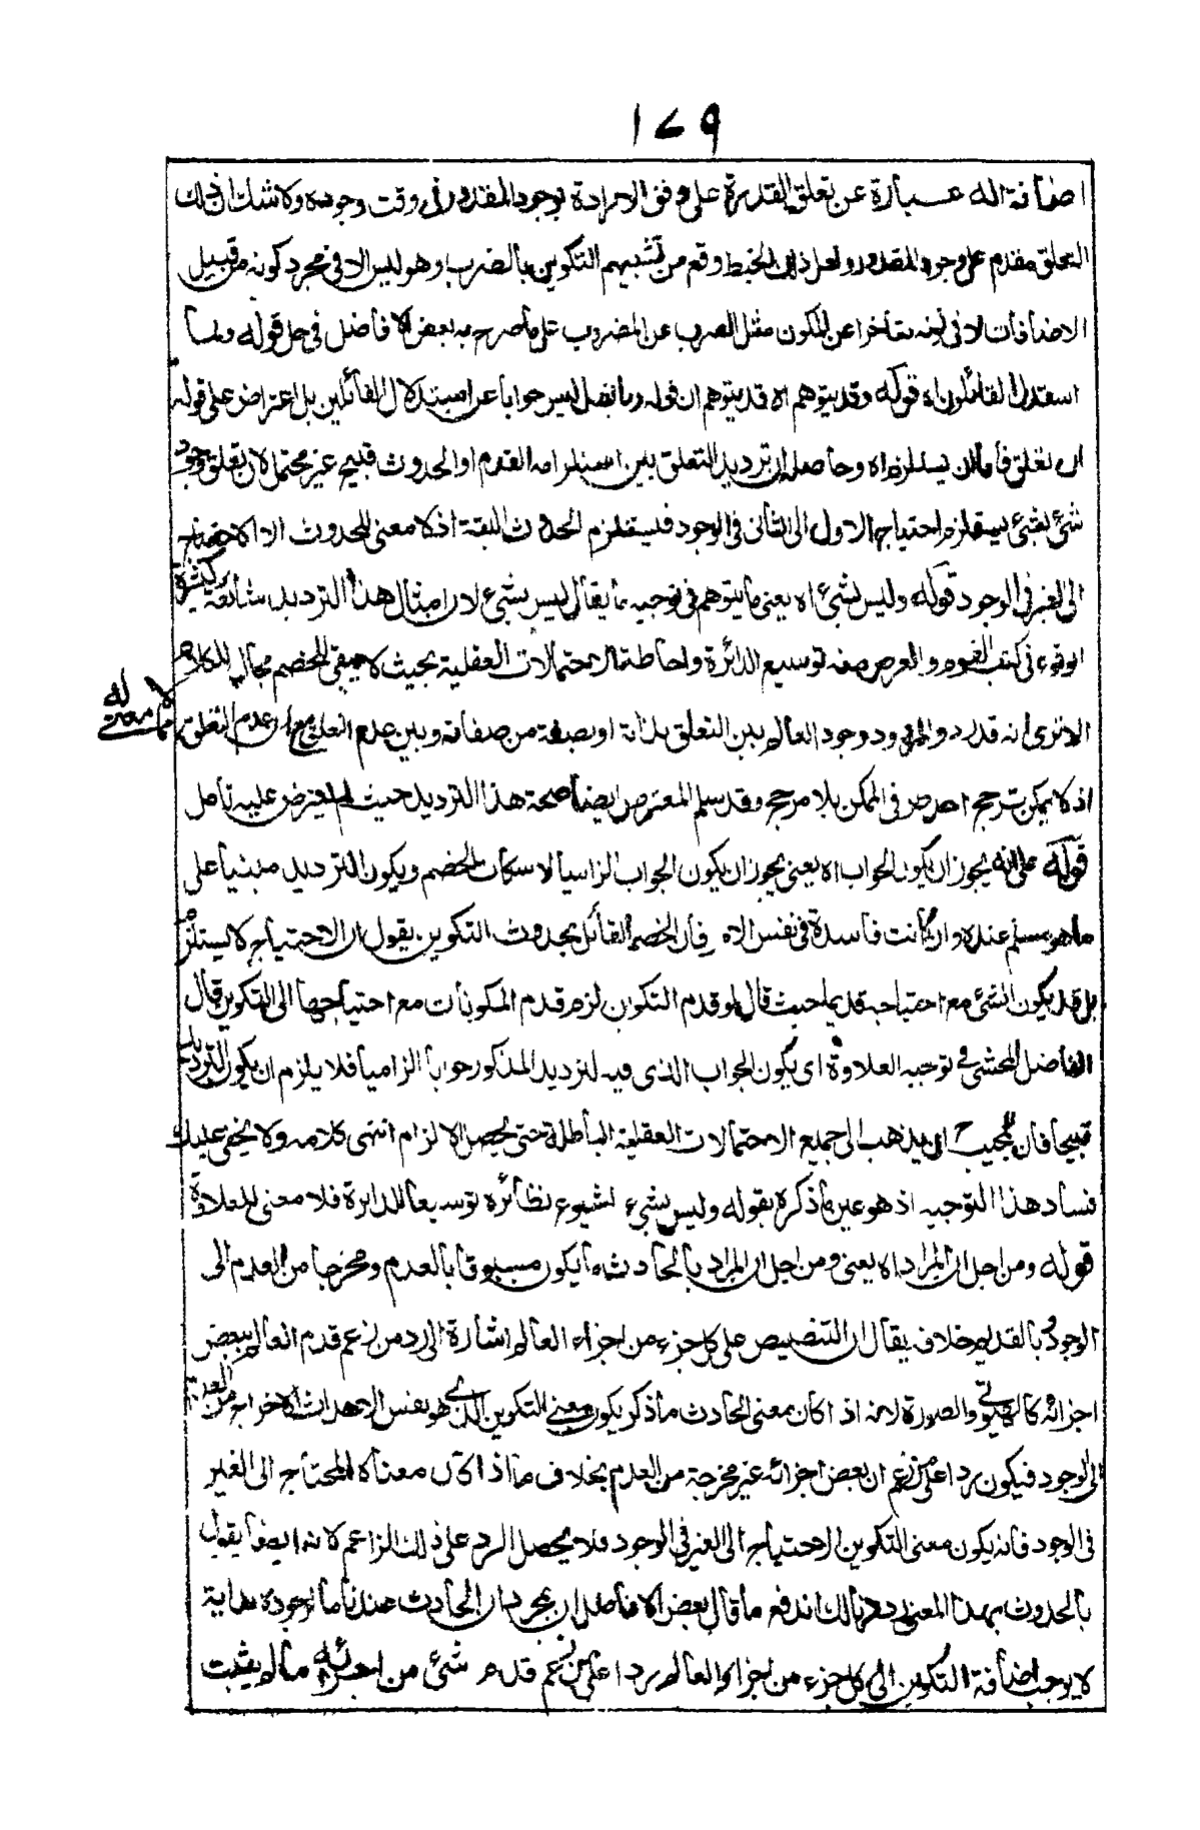 ١٧٩
اضافة اله عبارة عن تعلق القدرة على وفق الارادة بوجود المقدور في وقت وجوده ولا شك ان ذلك
التعلق مقدم على وجود المقدور ولعل ذلك الخبط وقع من تشبيههم التكوين بالضرب وهو ليس الا في مجرد كونه من قبيل
الاضافات لا في كونه متأخرا عن المكون مثل الضرب عن المضروب على ما صرح به بعض الافاضل في حل قوله ولما
استدل القائلون اه قوله وقد يتوهم اه قد يتوهم ان قوله وما يقال ليس جوابا عن استدلال القائلين بل اعتراض على قوله
ان تعلق فاما ان يستلزم اه وحاصله ان ترديد التعلق بين استلزامه القدم او الحدوث قبيح غير محتمل لان تعلق وجود
شئ بشئ يستلزم احتياج الاول الى الثانى في الوجود فيستلزم الحدوث البتة اذ لا معنى للحدوث الا الاحتياج
الى الغير في الوجود قوله وليس بشئ اه يعنى ما يتوهم في توجيه ما يقال ليس بشئ لان امثال هذا الترديد شائعة كثيرة
الوقوع في كتب القوم والغرض منه توسيع الدائرة واحاطة الاحتمالات العقلية بحيث لا يبقى للخصم مجال للكلام
الا ترى انه قد ردد وجود العالم بين التعلق بذاته او بصفة من صفاته وبين عدم التعلق مع ان عدم التعلق
مما لا معنى له
اذ لا يمكن ترجح احد في الممكن بلا مرجح وقد سلم المعترض ايضا صحة هذا الترديد حيث لم يعترض عليه تأمل
قوله على انه يجوز ان يكون الجواب اه يعنى يجوز ان يكون الجواب الزاميا لاسكات الخصم ويكون الترديد مبنيا على
ما هو مسلم عنده وان كانت فاسدة في نفس الامر فان الخصم القائل بحدوث التكوين يقول ان الاحتياج لا يستلزم
بل قد يكون الشئ مع احتياجه قديما حيث قال لو قدم التكوين لزم قدم المكونات مع احتياجها الى التكوين قال
الفاضل المحشى في توجيه العلاوة اى يكون الجواب الذى فيه الترديد المذكور جوابا الزاميا فلا يلزم ان يكون الترديد
قبيحا فان المجيب ان يذهب الى جميع الاحتمالات العقلية الباطلة حتى يحصل الالزام انتهى كلامه ولا يخفى عليك
فساد هذا التوجيه اذ هو عين ما ذكره بقوله وليس بشئ لشيوع نظائره توسيعا للدائرة فلا معنى للعلاوة
قوله ومن اجل ان المراد اه يعنى ومن اجل ان المراد بالحادث ما يكون مسبوقا بالعدم ومخرجا من العدم الى
الوجود بالقديم خلافه يقال ان التنصيص على كل جزء من اجزاء العالم اشارة الى رد من زعم قدم العالم ببعض
اجزائه كالهيولى والصورة لانه اذا كان معنى الحادث ما ذكر يكون معنى التكوين الذى هو نفس الاحداث الاخراج من العدم
الى الوجود فيكون ردا على من زعم ان بعض اجزائه غير مخرجة من العدم بخلاف ما اذا كان معناه المحتاج الى الغير
في الوجود فانه يكون معنى التكوين الاحتياج الى الغير في الوجود فلا يحصل الرد على ذلك الزاعم لانه ايضا يقول
بالحدوث بهذا المعنى وبذلك اندفع ما قال بعض الافاضل ان مجرد ان الحادث عندنا ما لوجوده بداية
لا يوجب اضافة التكوين الى كل جزء من اجزاء العالم ردا على من زعم قدم شئ من اجزائه ما لم يثبت